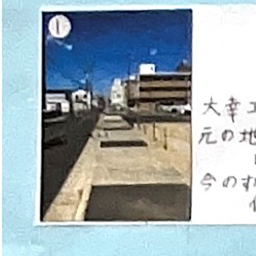 ①
大幸工
元の地
今のす